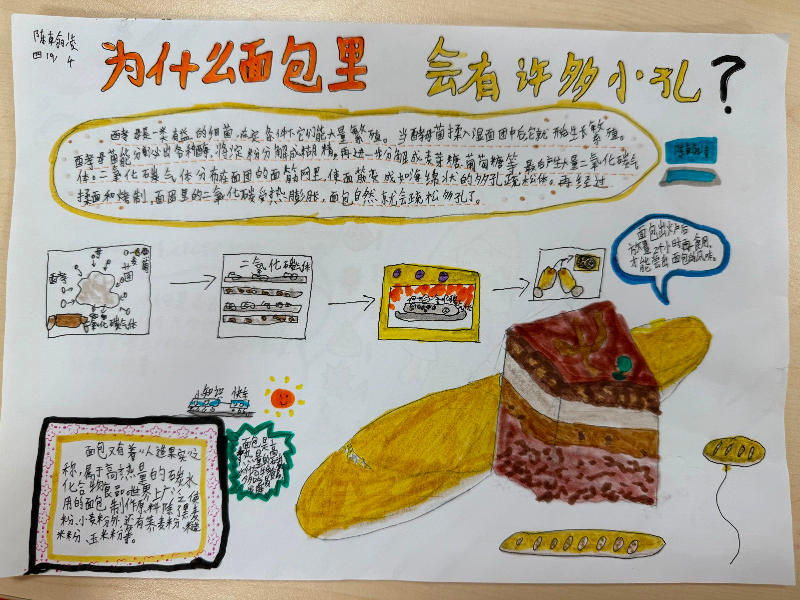 陈卓翰凌
四19/4
为什么面包里 会有许多小孔?
酵母是一类有益的细菌,在适条件下它们能大量繁殖。当酵母菌揉入湿面团中后,它就开始生长繁殖。
酵母菌能分泌出各种酶,将淀粉分解成糊精。再进一步分解成麦芽糖、葡萄糖等,最后产生大量二氧化碳气
体。二氧化碳气体分布在面团的面筋网里,使面筋变成如海绵状的多孔疏松体。再经过
揉面和烤制,面团里的二氧化碳受热膨胀,面包自然就会疏松多孔了。
面包出炉后
放置2个小时再食用,
才能尝出面包的风味。
酵母
面团
二氧化碳气体
二氧化碳气体
小知识 快车
面包是高
热量
面包又有着"人造果实"之
称,属于高热量的碳水
化合物食品。世界上广泛使
用的面包,制作原料除了黑麦
粉、小麦粉外,还有荞麦粉、糙
米粉、玉米粉等。